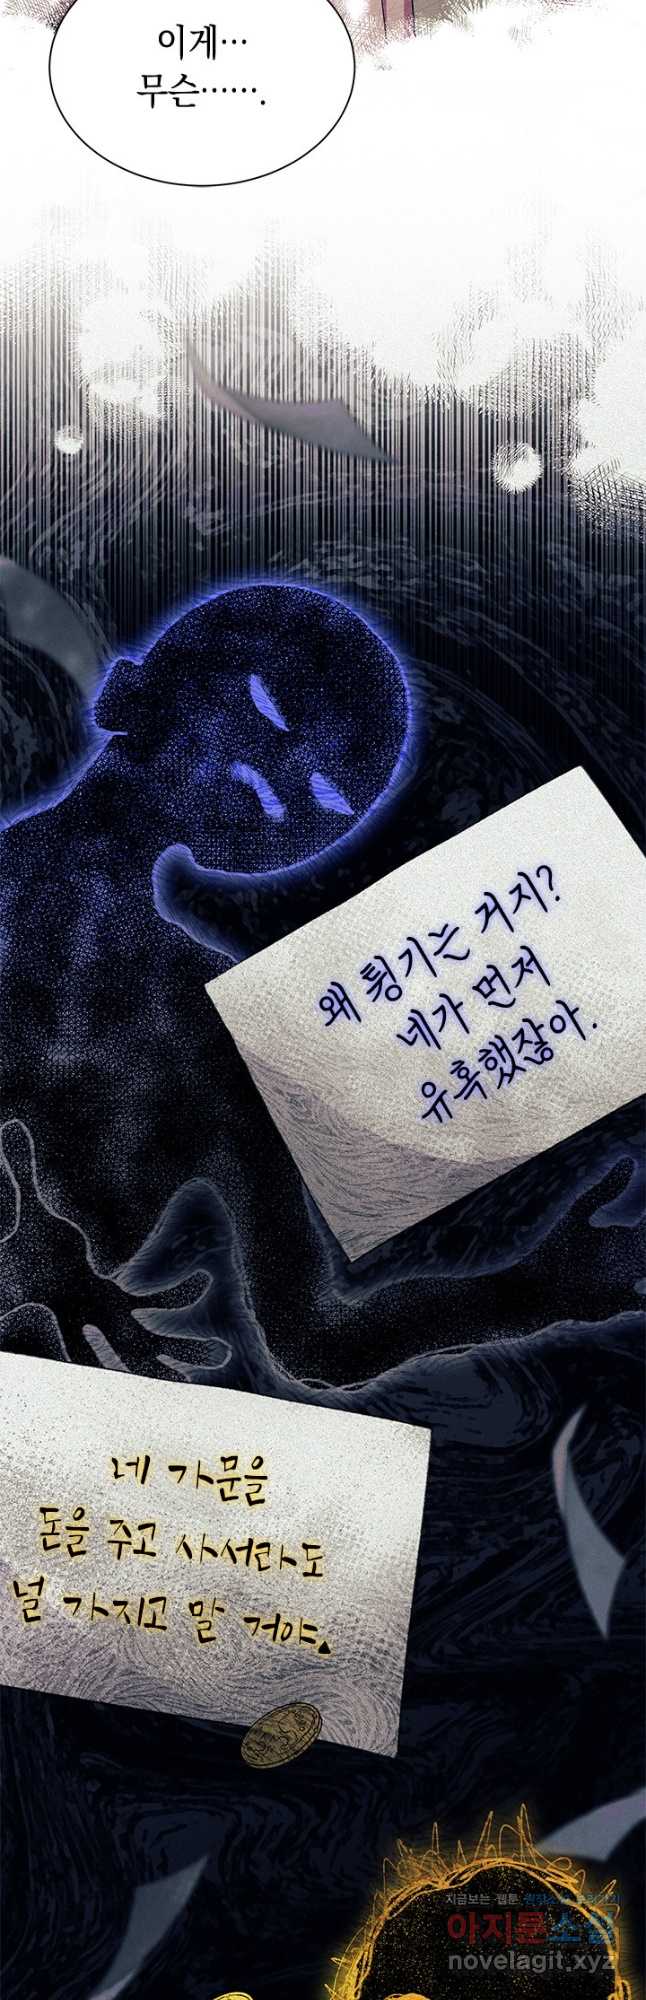 이게…
무슨…….
왜 튕기는 거지?
네가 먼저
유혹했잖아.
네 가문을
돈을 주고 사서라도
널 가지고 말 거야.
아지툰소설
novelagit.xyz